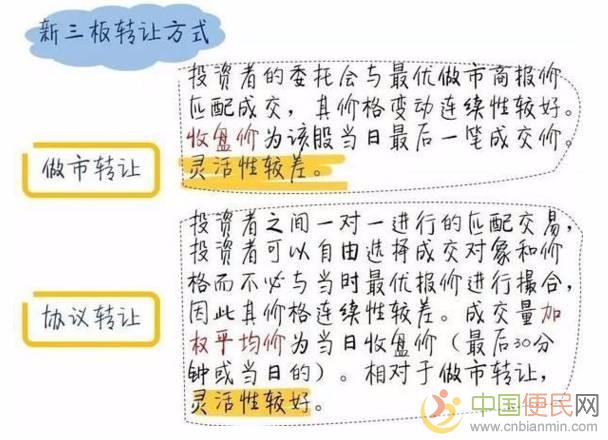 新三板转让方式
投资者的委托会与最优做市商报价
匹配成交，其价格变动连续性较好。
收盘价为该股当日最后一笔成交价。
灵活性较差。
做市转让
投资者之间一对一进行的匹配交易，
投资者可以自由选择成交对象和价
格而不必与当时最优报价进行撮合，
因此其价格连续性较差。成交量加
权平均价为当日收盘价（最后30分
钟或当日的）。相对于做市转让，
灵活性较好。
协议转让
中国便民网
www.cnbianmin.com